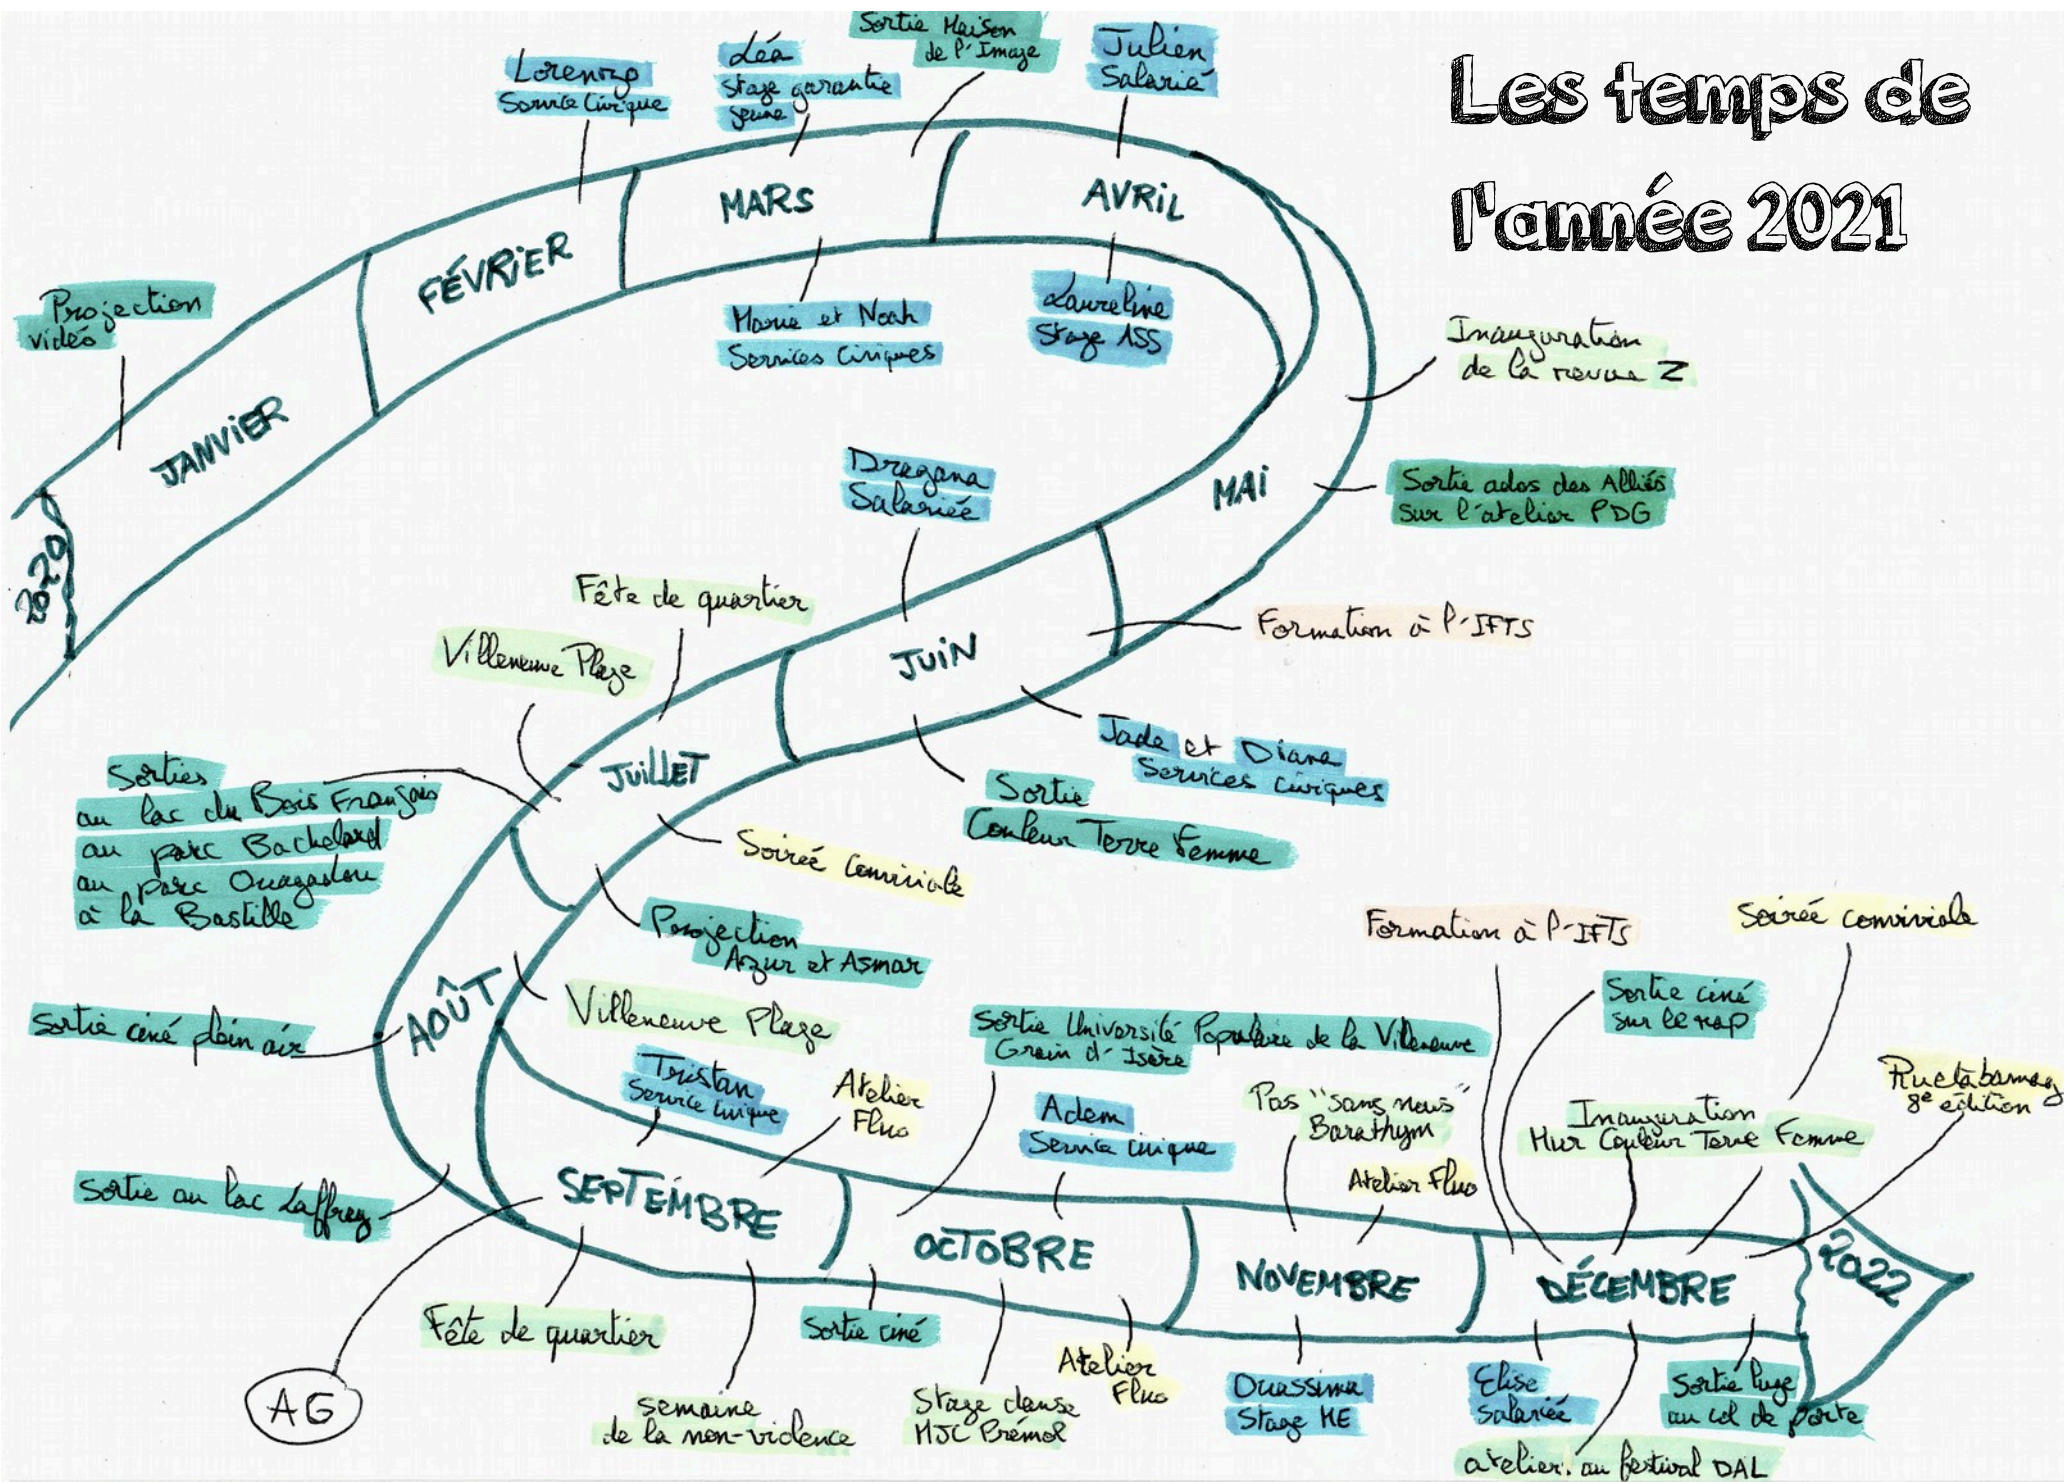 Les temps de
l'année 2021
2020
JANVIER
Projection
vidéo
FÉVRIER
Lorenzo
Service Civique
MARS
Léa
Stage garantie
jeune
Sortie Maison
de l'Image
Marie et Noah
Services Civiques
AVRIL
Julien
Salarié
Laureline
Stage ASS
MAI
Inauguration
de la revue Z
Sortie ados des Alliés
sur l'atelier PDG
Formation à l'IFTS
JUIN
Dragana
Salariée
Jade et Diana
Services Civiques
Sortie
Couleur Terre Femme
JUILLET
Fête de quartier
Villeneuve Plage
Sorties
au lac du Bois Français
au parc Bachelard
au parc Ouagadou
à la Bastille
Soirée Conviviale
Projection
Azur et Asmar
AOÛT
Villeneuve Plage
Sortie ciné plein air
Sortie au lac Laffrey
SEPTEMBRE
Tristan
Service Civique
Atelier
Fluo
AG
Fête de quartier
semaine
de la non-violence
OCTOBRE
Sortie Université Populaire de la Villeneuve
Grain d'Isère
Adem
Service Civique
Sortie ciné
Stage danse
MJC Prémol
Atelier
Fluo
NOVEMBRE
Pas "sans nous"
Barathym
Atelier Fluo
Ouassima
Stage ME
DÉCEMBRE
Formation à l'IFTS
Sortie ciné
sur le rap
Soirée conviviale
Inauguration
Mur Couleur Terre Femme
8e édition
Elise
Salariée
atelier au festival DAL
Sortie luge
au col de porte
2022